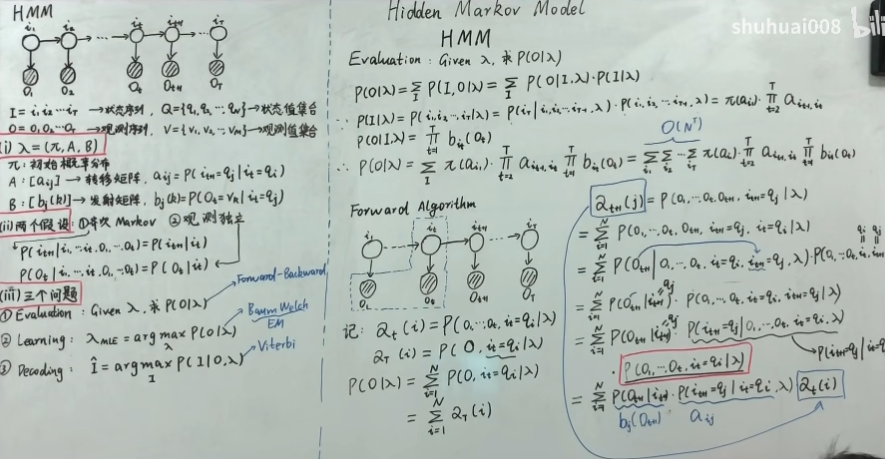 HMM
i₁ i₂ ... iₜ iₜ₊₁ ... i_T
O₁ O₂ Oₜ Oₜ₊₁ O_T
I = i₁ i₂ ... i_T → 状态序列, Q={q₁, q₂, ... q_N} → 状态值集合
O = O₁ O₂ ... O_T → 观测序列, V={v₁, v₂, ... v_M} → 观测值集合
(i) λ = (π, A, B)
π: 初始概率分布
A: [aᵢⱼ] → 转移矩阵, aᵢⱼ = P(iₜ₊₁=qⱼ | iₜ=qᵢ)
B: [bⱼ(k)] → 发射矩阵, bⱼ(k) = P(Oₜ=v_k | iₜ=qⱼ)
(ii) 两个假设: ① 齐次 Markov ② 观测独立
P(iₜ₊₁ | i₁, ... iₜ, O₁, ... Oₜ) = P(iₜ₊₁ | iₜ)
P(Oₜ | i₁, ... iₜ, O₁, ... Oₜ₋₁) = P(Oₜ | iₜ)
(iii) 三个问题
Forward-Backward
① Evaluation: Given λ, 求 P(O|λ)
Baum Welch
EM
② Learning: λ_MLE = arg max_λ P(O|λ)
Viterbi
③ Decoding: Î = arg max_I P(I|O,λ)
Hidden Markov Model
HMM
Evaluation: Given λ, 求 P(O|λ)
P(O|λ) = Σ_I P(I,O|λ) = Σ_I P(O|I,λ)·P(I|λ)
P(I|λ) = P(i₁, i₂, ... i_T|λ) = P(i_T | i₁, i₂, ... i_T₋₁, λ)·P(i₁, i₂, ... i_T₋₁, λ) = π(a_i₁)·∏_{t=2}^T a_{iₜ₋₁,iₜ}
P(O|I,λ) = ∏_{t=1}^T b_iₜ(Oₜ)
O(N^T)
∴ P(O|λ) = Σ_I π(a_i₁)·∏_{t=2}^T a_{iₜ₋₁,iₜ} ∏_{t=1}^T b_iₜ(Oₜ) = Σ_i₁ Σ_i₂ ... Σ_i_T π(a_i₁)·∏_{t=2}^T a_{iₜ₋₁,iₜ} ∏_{t=1}^T b_iₜ(Oₜ)
Forward Algorithm
i₁ iₜ iₜ₊₁ ... i_T
O₁ Oₜ Oₜ₊₁ O_T
记: αₜ(i) = P(O₁, ... Oₜ, iₜ=qᵢ|λ)
α_T(i) = P(O, i_T=qᵢ|λ)
P(O|λ) = Σ_{i=1}^N P(O, iₜ=qᵢ|λ)
= Σ_{i=1}^N α_T(i)
αₜ₊₁(j) = P(O₁, ... Oₜ, Oₜ₊₁, iₜ₊₁=qⱼ|λ)
= Σ_{i=1}^N P(O₁, ... Oₜ, Oₜ₊₁, iₜ₊₁=qⱼ, iₜ=qᵢ|λ)
= Σ_{i=1}^N P(Oₜ₊₁ | O₁, ... Oₜ, iₜ=qᵢ, iₜ₊₁=qⱼ, λ)·P(O₁, ... Oₜ, iₜ, iₜ₊₁
qᵢ qⱼ
= Σ_{i=1}^N P(Oₜ₊₁ | iₜ₊₁=qⱼ)·P(O₁, ... Oₜ, iₜ=qᵢ, iₜ₊₁=qⱼ|λ)
= Σ_{i=1}^N P(Oₜ₊₁ | iₜ₊₁=qⱼ)·P(iₜ₊₁=qⱼ | O₁, ... Oₜ, iₜ=qᵢ, λ)
· P(O₁, ... Oₜ, iₜ=qᵢ|λ)
P(iₜ₊₁=qⱼ | iₜ=q
= Σ_{i=1}^N P(Oₜ₊₁ | iₜ₊₁)·P(iₜ₊₁=qⱼ | iₜ=qᵢ, λ) αₜ(i)
bⱼ(Oₜ₊₁) aᵢⱼ
shuhuai008
bili